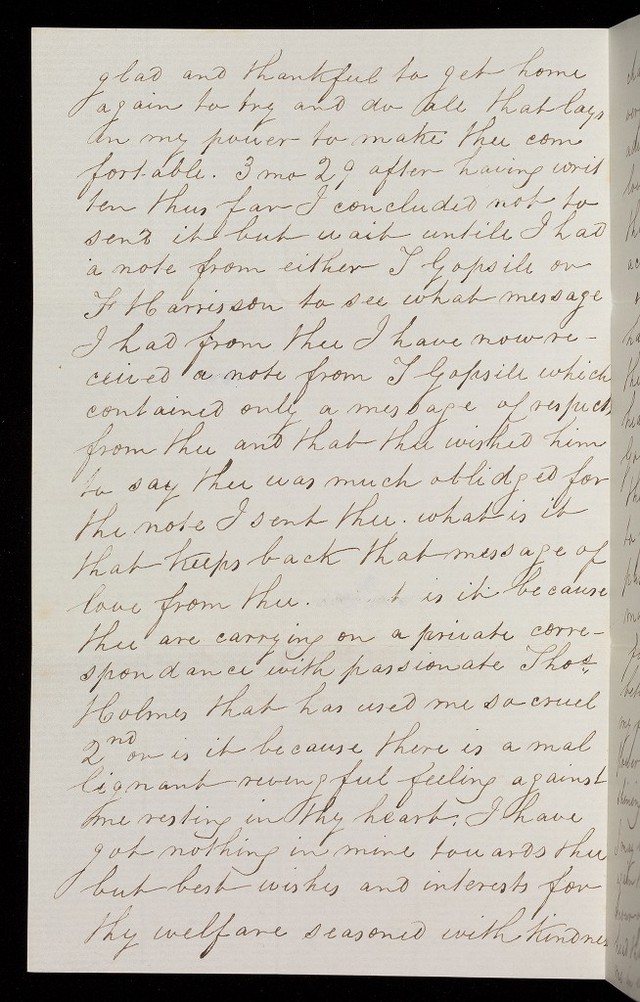 glad and thankful to get home
again to try and do all that lays
in my power to make thee com
fortable. 3 mo 29 after having writ
ten thus far I concluded not to
send it but wait untile I had
a note from either T Gopsile or
F Harrisson to see what message
I had from thee I have now re-
ceived a note from T Gopsile which
contained only a message of respects
from thee and that thee wished him
to say thee was much oblidged for
the note I sent thee. what is it
that keeps back that message of
love from thee. is it because
thee are carrying on a private corre-
spondance with passionate Thos.
Holmes that has used me so cruel
2nd or is it because there is a mal
lignant revengful feeling against
me resting in thy heart. I have
got nothing in mine towards thee
but best wishes and interests for
thy welfare seasoned with kindness